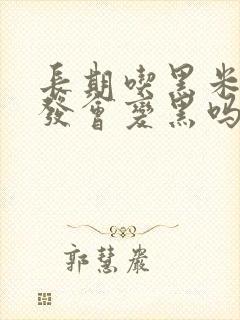 長期喫黑米
發會變黑嗎
郭慧巖